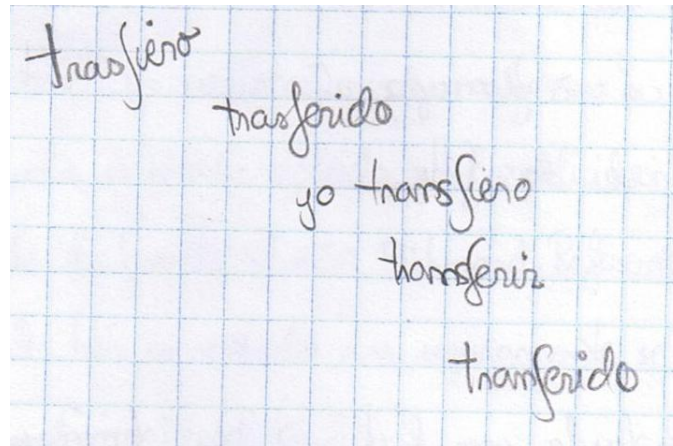 trasfiero
trasferido
yo transfiero
transferir
tranferido